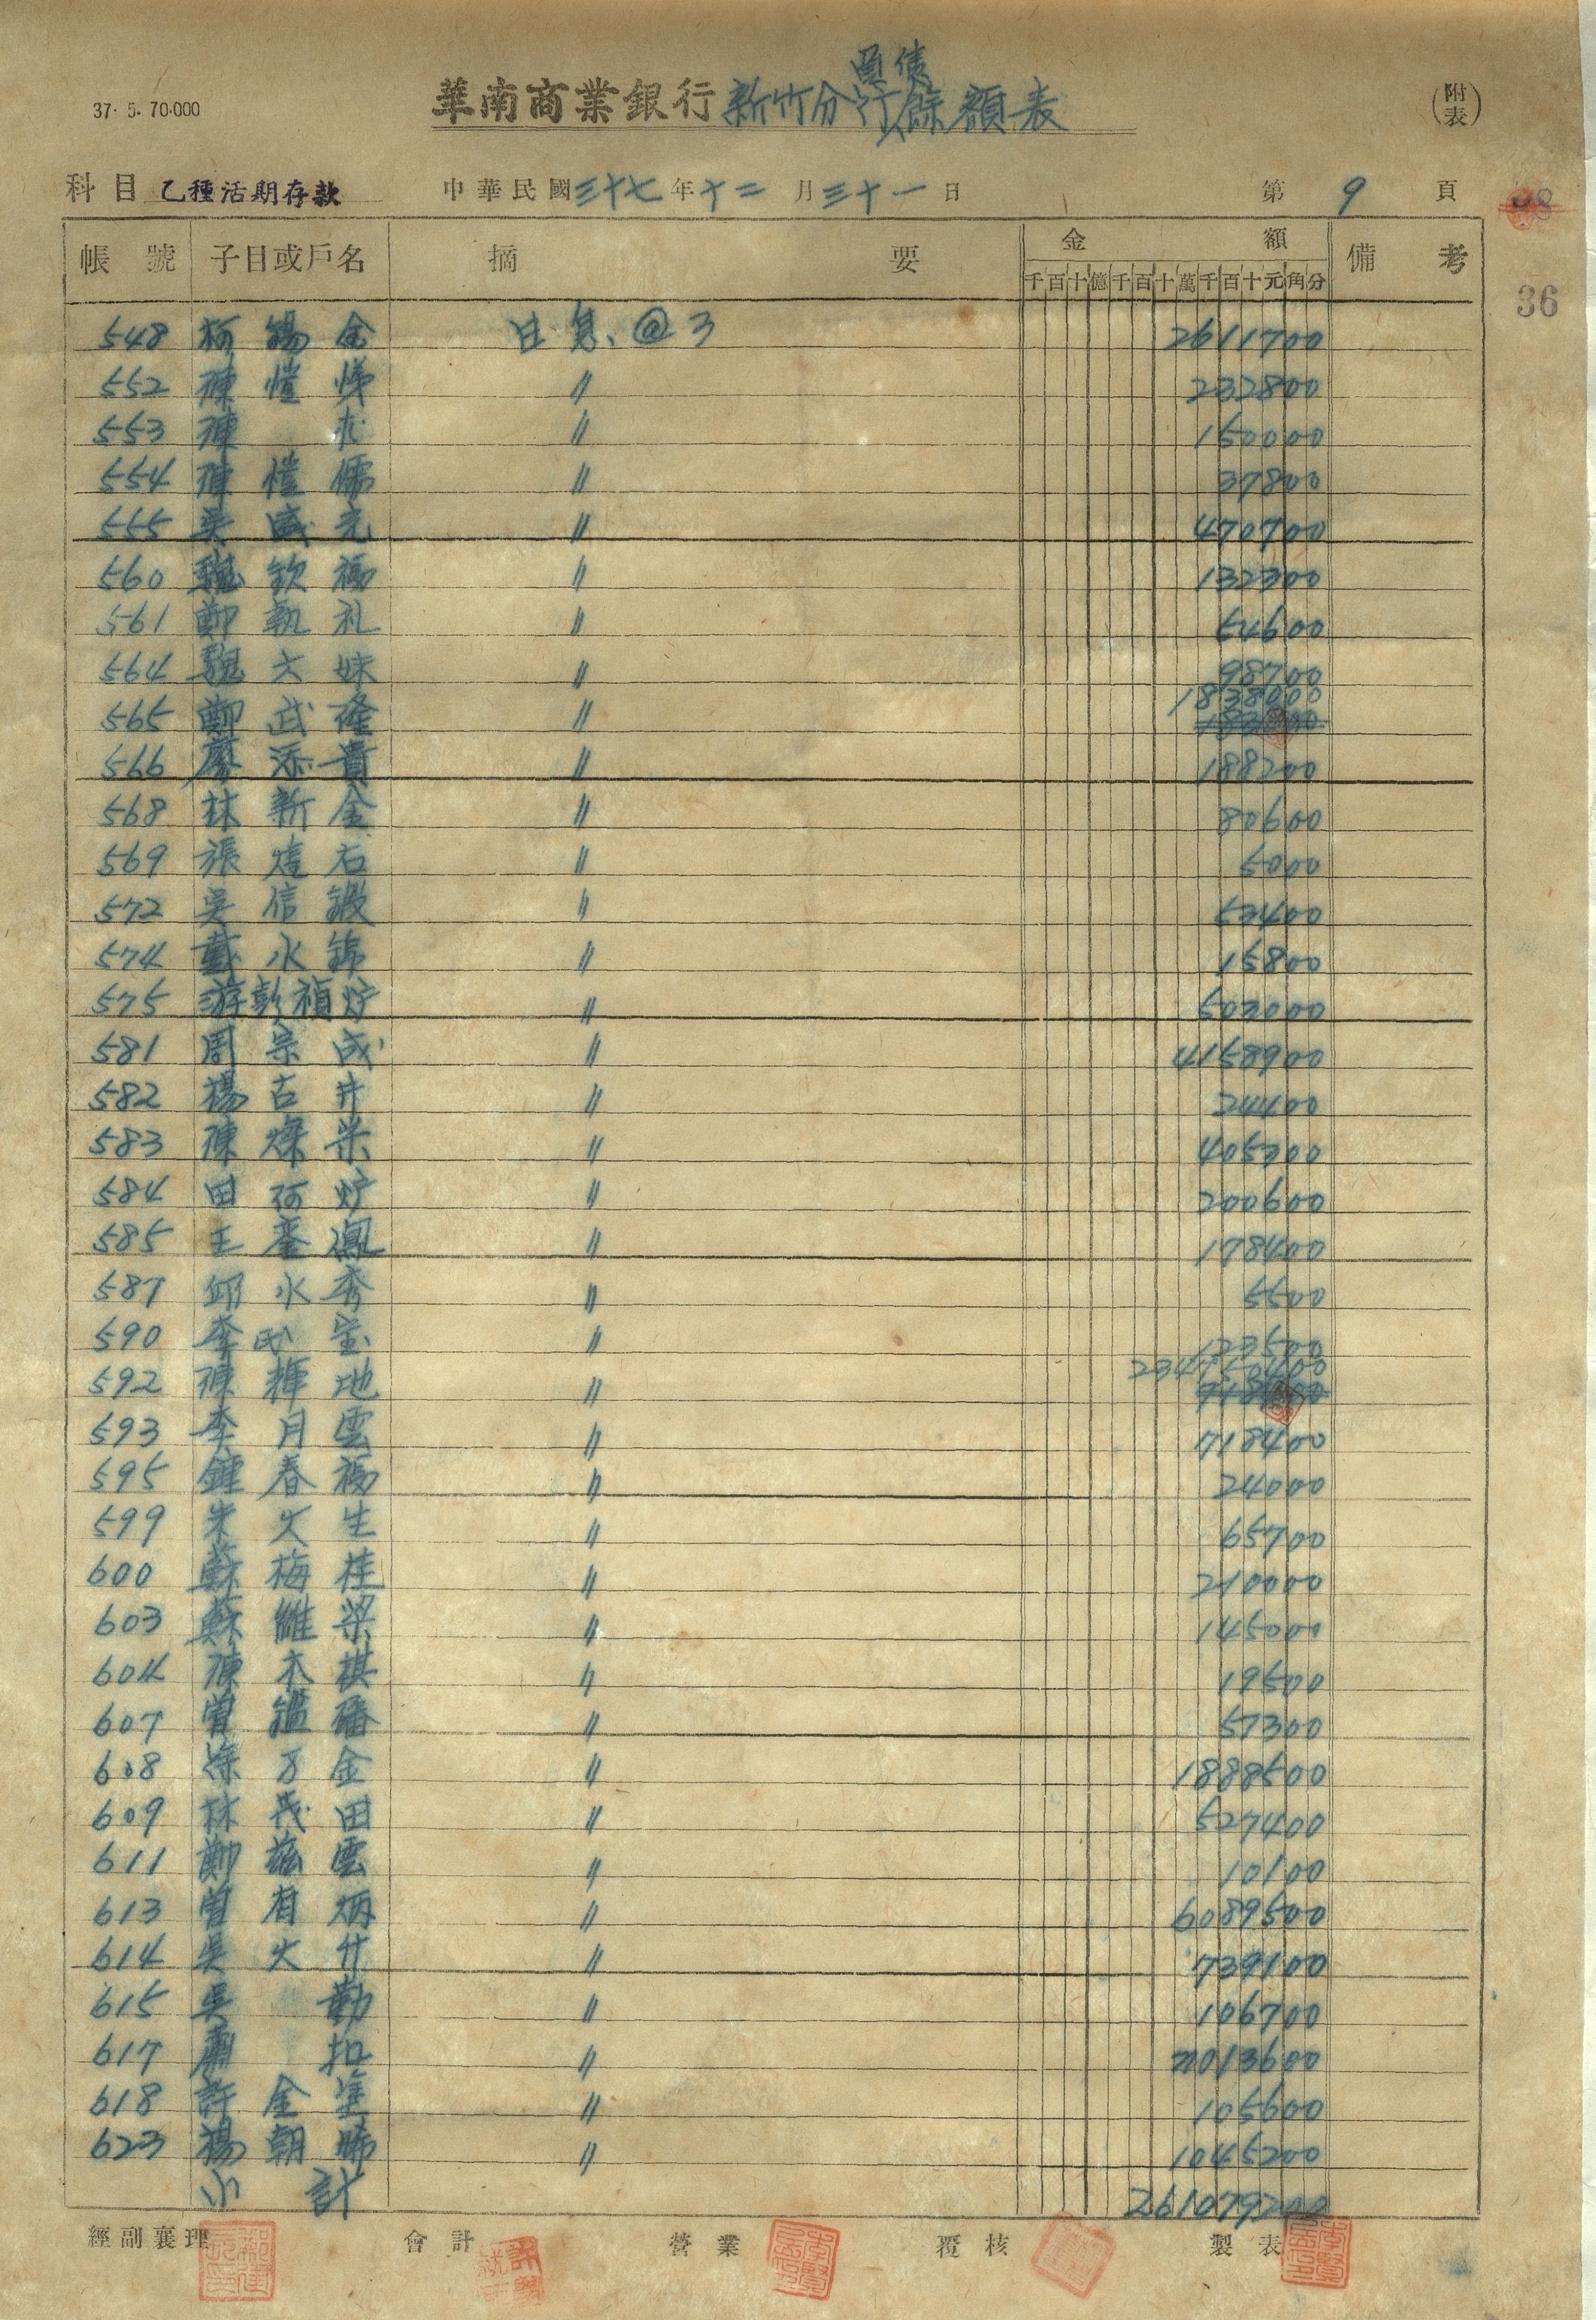 37. 5. 70.000
華南商業銀行新竹分行負債餘額表
(附表)
科目 乙種活期存款 中華民國三十七年十二月三十一日 第9頁
36
帳號 子目或戶名 摘要 金額 備考
千百十億千百十萬千百十元角分
548 柯錫金 日息@3 2611700
552 陳愷悌 〃 232800
553 陳 〃 150000
554 陳愷儒 〃 37800
555 吳盛充 〃 470700
560 魏欽福 〃 132300
561 鄭執礼 〃 54600
564 魏大妹 〃 98700
565 鄭武隆 〃 1838000
566 廖添貴 〃 188200
568 林新金 〃 80600
569 張煌石 〃 5000
572 吳信鍛 〃
574 戴水錦 〃 15800
575 游彭禎炉 〃
581 周宗成 〃 4158900
582 楊古井 〃 24400
583 陳燦栄 〃
584 田阿炉 〃 200600
585 王鳳 〃 178400
587 邱水秀 〃 5500
590 李氏宝 〃 123500
592 陳輝地 〃
593 李月雲 〃 718400
595 鍾春福 〃 24000
599 朱火生 〃 65700
600 蘇梅桂 〃 210000
603 蘇維梁 〃 145000
604 陳木棋 〃 19500
607 曾鑑磻 〃 57300
608 徐万金 〃 1888500
609 林茂田 〃 527400
611 鄭雲 〃 10100
613 曾有炳 〃 6089500
614 吳火廿 〃 739100
615 吳勤 〃 106700
617 蕭扣 〃
618 許金塗 〃 105600
623 楊朝 〃 1045200
小計 261079200
經副襄理 會計 營業 覆核 製表